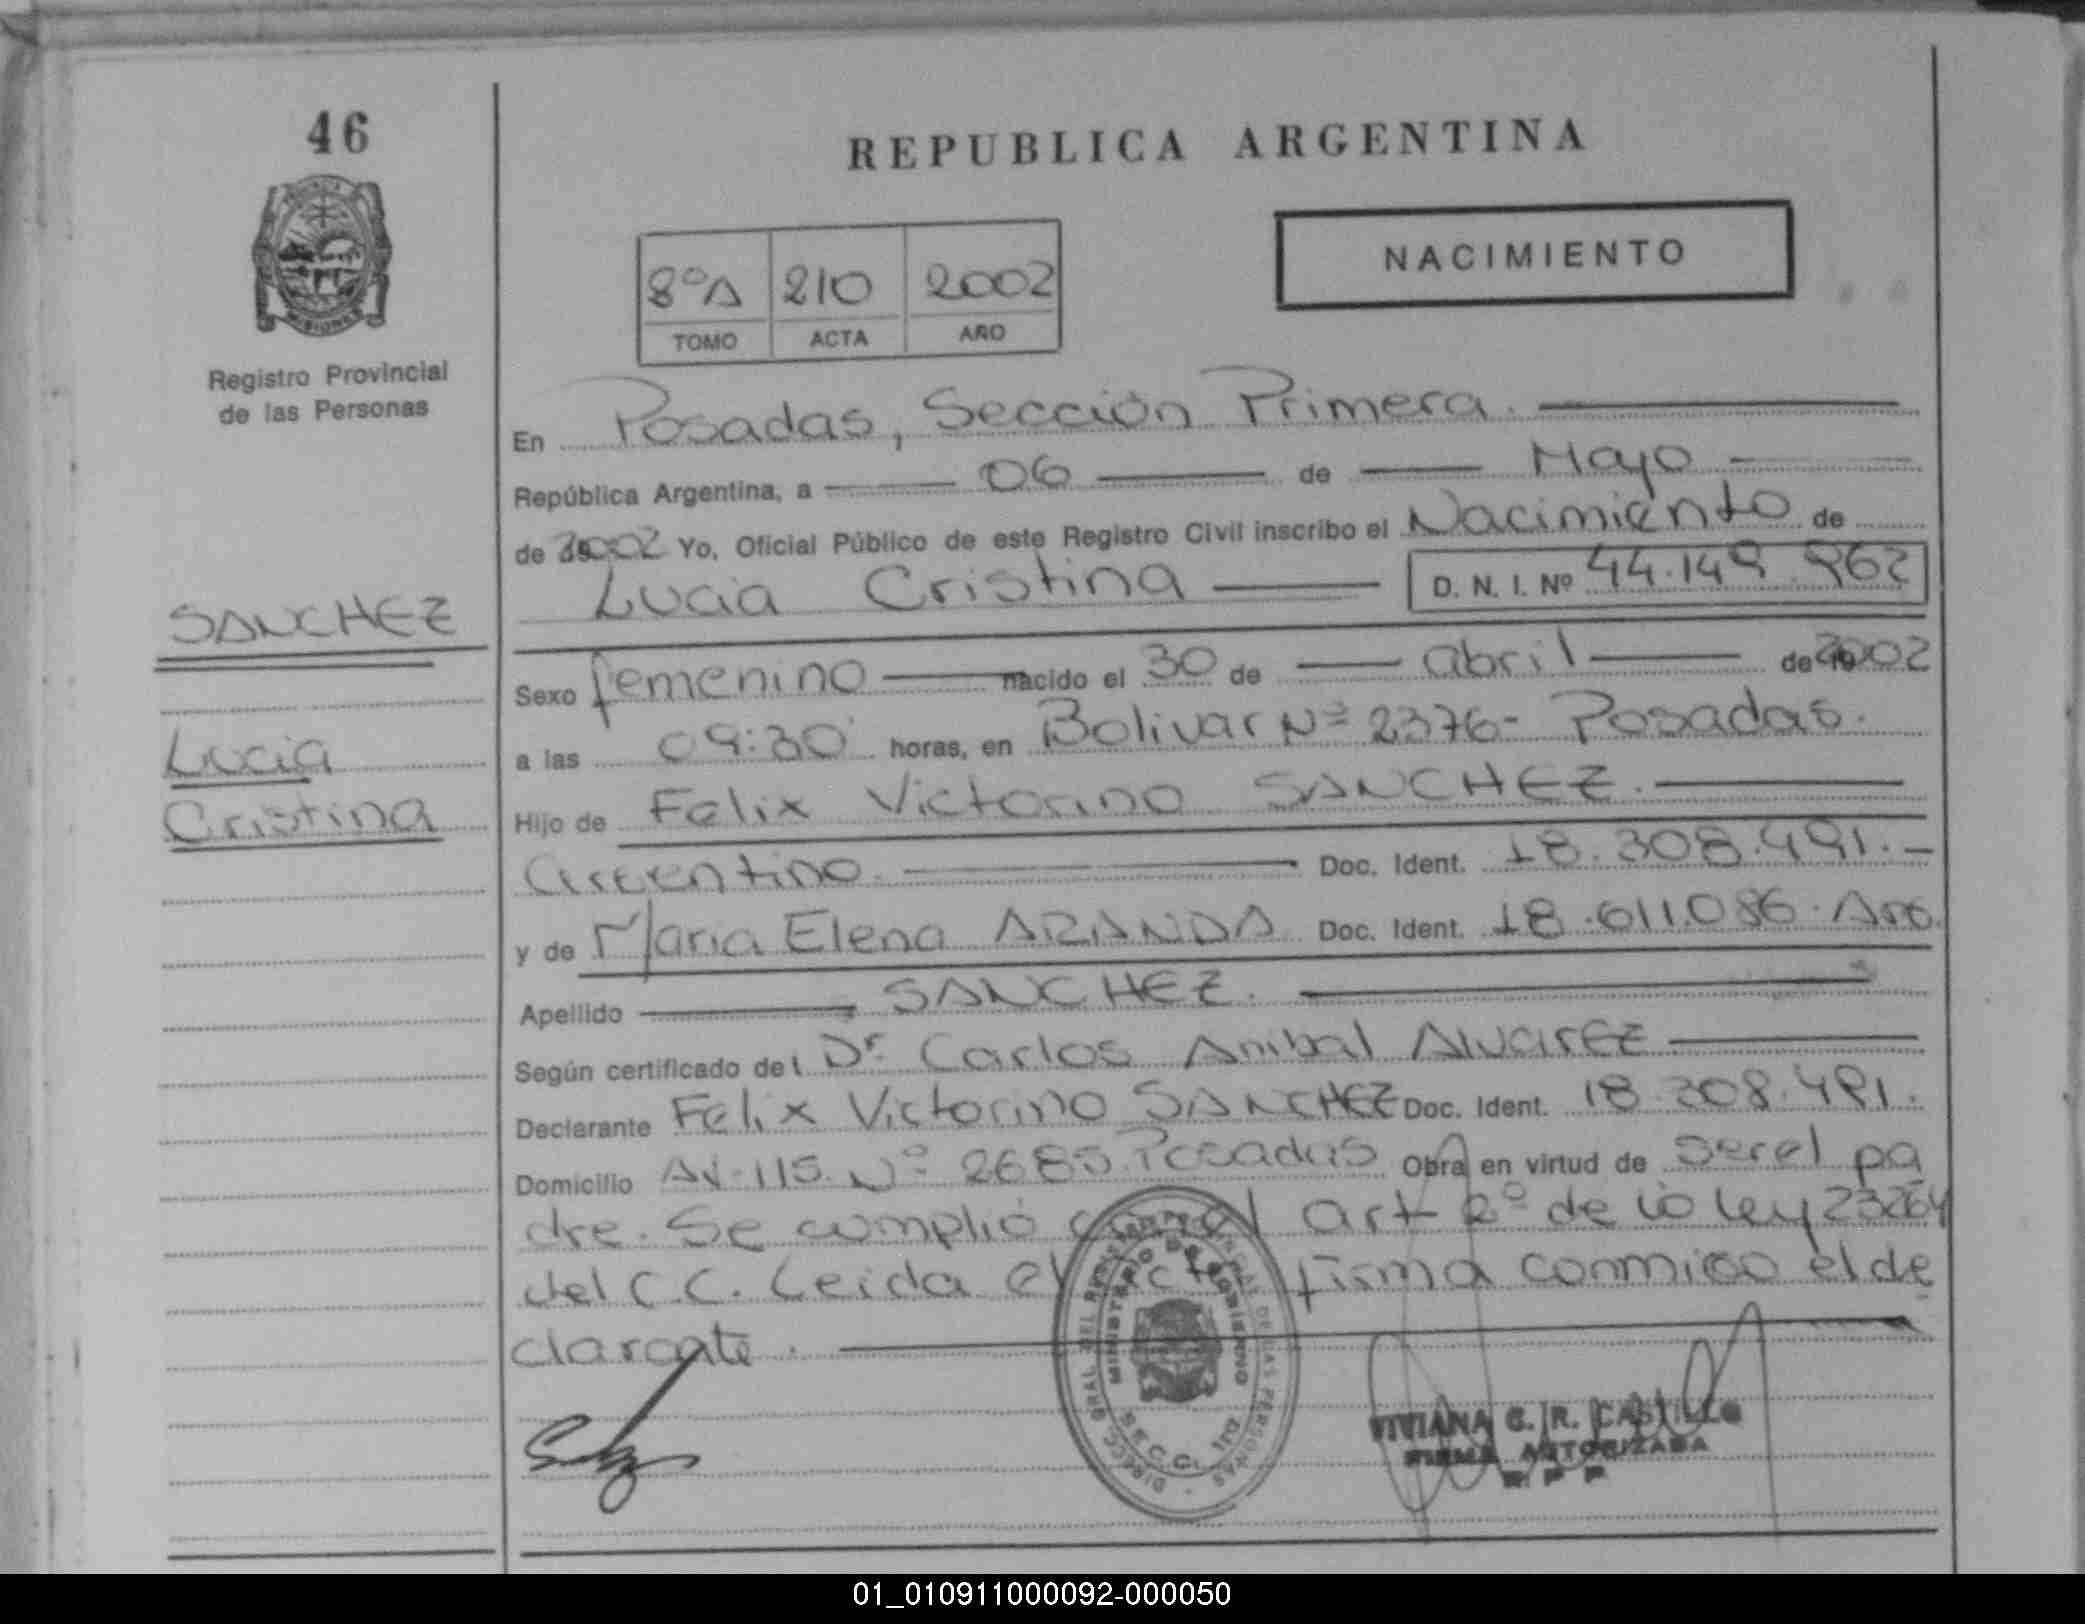 46
REPUBLICA ARGENTINA
NACIMIENTO
8ºA 210 2002
TOMO ACTA AÑO
MISIONES
Registro Provincial
de las Personas
En Posadas, Sección Primera.
República Argentina, a 06 de Mayo
de 2002 Yo, Oficial Público de este Registro Civil inscribo el Nacimiento de
Lucia Cristina D. N. I. Nº 44.149.962
SANCHEZ
Lucia
Cristina
Sexo femenino nacido el 30 de abril de 2002
a las 09:30 horas, en Bolivar Nº 2376- Posadas.
Hijo de Felix Victorino SANCHEZ.
argentino. Doc. Ident. 18.308.491.-
y de Maria Elena ARANDA Doc. Ident. 18.611.086. Arg.
Apellido SANCHEZ.
Según certificado del Dr. Carlos Anibal Alvarez
Declarante Felix Victorino SANCHEZ Doc. Ident. 18.308.491.
Domicilio Av. 115. Nº 2685. Posadas Obra en virtud de ser el pa
dre. Se cumplió con el art 2º de la ley 23264
del C.C. Leida el acta firma conmigo el de
clarante.
MINISTERIO DE GOBIERNO
VIVIANA G. R. CASTILLO
FIRMA AUTORIZADA
R. P. P.
01_010911000092-000050